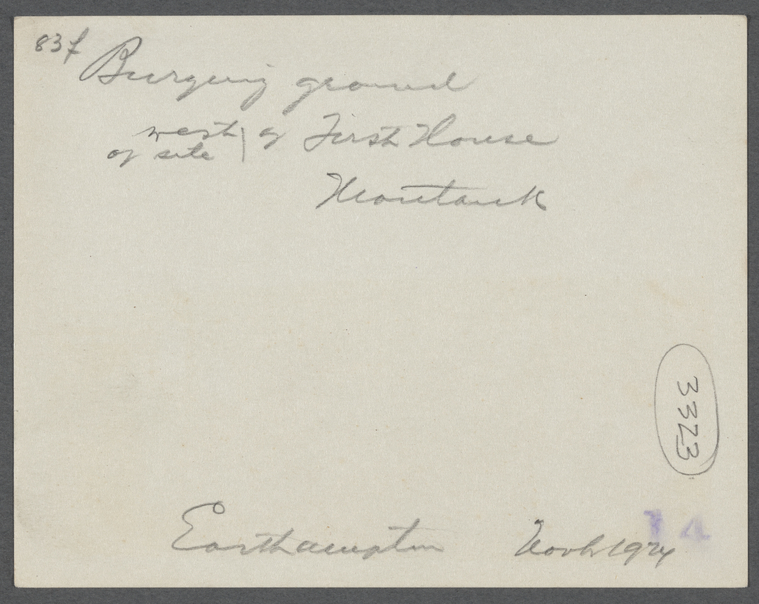 83f
Burying ground
west of First House
of site
Montauk
3323
Easthampton Novbr 1924
14